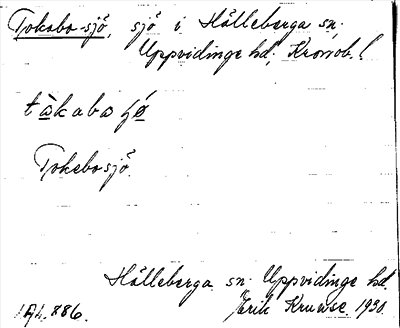 Tokabo-sjö, sjö i Hälleberga sn.
Uppvidinge hd. Kronob. l
tàkabo ʃǿ
Tokebosjö.
Hälleberga sn. Uppvidinge hd.
Erik Kruuse 1930.